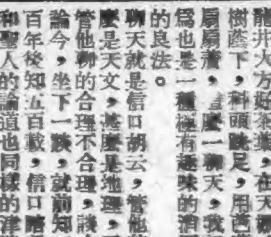 龍井大方好茶葉，在天
樹蔭下，科頭跣足，用芭蕉
扇扇着，這麼一聊天，我
爲也是一種極有趣味的消
的良法。
聊天就是信口胡云，管他
麼是天文，甚麼是地理，
管他聊的合理不合理，談
論今，坐下一談，就前知
百年後知五百載，信口
和聖人的論道也同樣的津